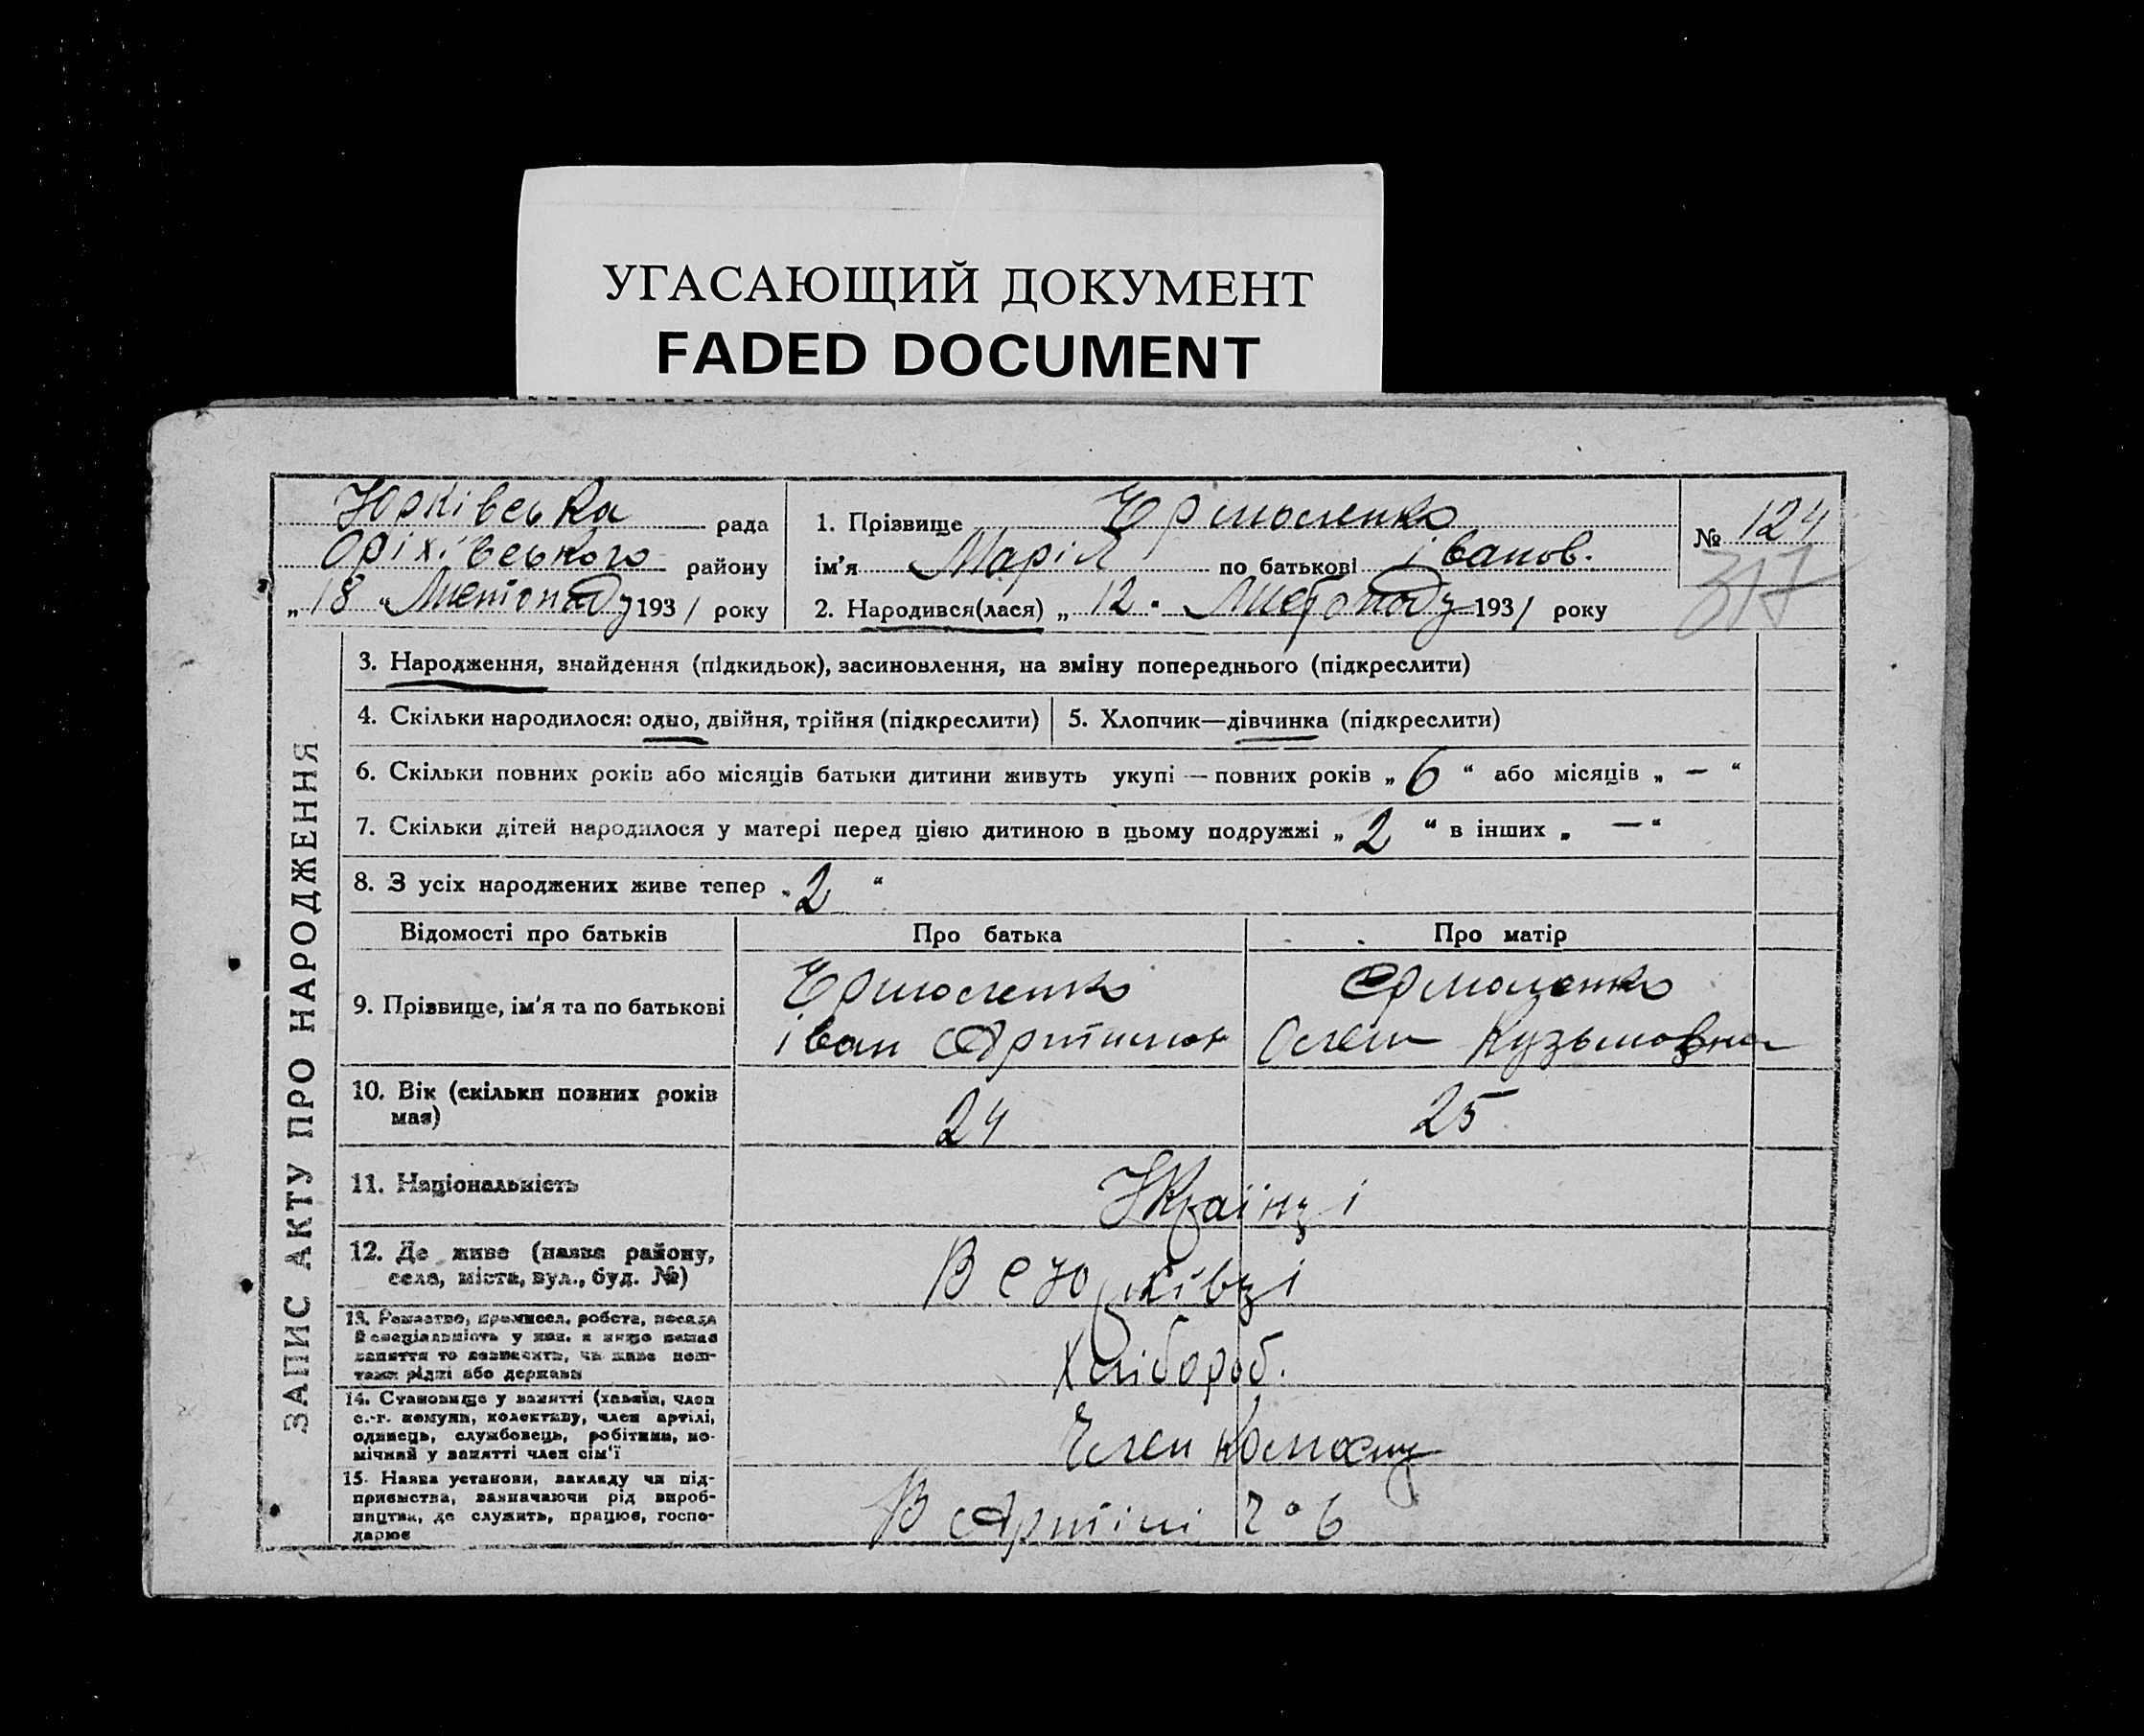 УГАСАЮЩИЙ ДОКУМЕНТ
FADED DOCUMENT
Юрківська рада
Оріхівського району
„18“ Листопаду 1931 року
1. Прізвище Ермоленко
ім'я Марія по батькові іванов.
2. Народився(лася) „12. Листопаду 1931 року
№ 124
317
ЗАПИС АКТУ ПРО НАРОДЖЕННЯ
3. Народження, знайдення (підкидьок), засиновлення, на зміну попереднього (підкреслити)
4. Скільки народилося: одно, двійня, трійня (підкреслити)
5. Хлопчик—дівчинка (підкреслити)
6. Скільки повних років або місяців батьки дитини живуть укупі — повних років „6“ або місяців „—“
7. Скільки дітей народилося у матері перед цією дитиною в цьому подружжі „2“ в інших „—“
8. З усіх народжених живе тепер „2“
Відомості про батьків Про батька Про матір
9. Прізвище, ім'я та по батькові
Ермоленко
іван Артимов
Ермоленко
Олена Кузьмовна
10. Вік (скільки повних років
має)
24 25
11. Національність Українці
12. Де живе (назва району,
села, міста, вул., буд. №)
В с Юрківці
13. Ремество, промисел, робота, посада
й спеціальність у них, а якщо немає
заняття то зазначити, чи живе кош-
тами рідні або держави
Хлібороб.
14. Становище у занятті (хазяїн, член
с.-г. комуни, колективу, член артілі,
одинець, службовець, робітник, по-
мічний у занятті член сім'ї
Член колгоспу
15. Назва установи, закладу чи під-
приємства, зазначаючи рід вироб-
ництва, де служить, працює, госпо-
дарює
В Артілі 2º6